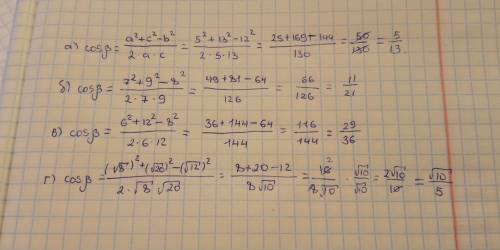 а) cosβ = (a²+c²−b²)/(2·a·c) = (5²+13²−12²)/(2·5·13) = (25+169−144)/130 = 50/130 = 5/13.
б) cosβ = (7²+9²−8²)/(2·7·9) = (49+81−64)/126 = 66/126 = 11/21
в) cosβ = (6²+12²−8²)/(2·6·12) = (36+144−64)/144 = 116/144 = 29/36
г) cosβ = ((√8)²+(√20)²−(√12)²)/(2·√8·√20) = (8+20−12)/(8√10) = 16/(8√10) · √10/√10 = 2√10/10 = √10/5